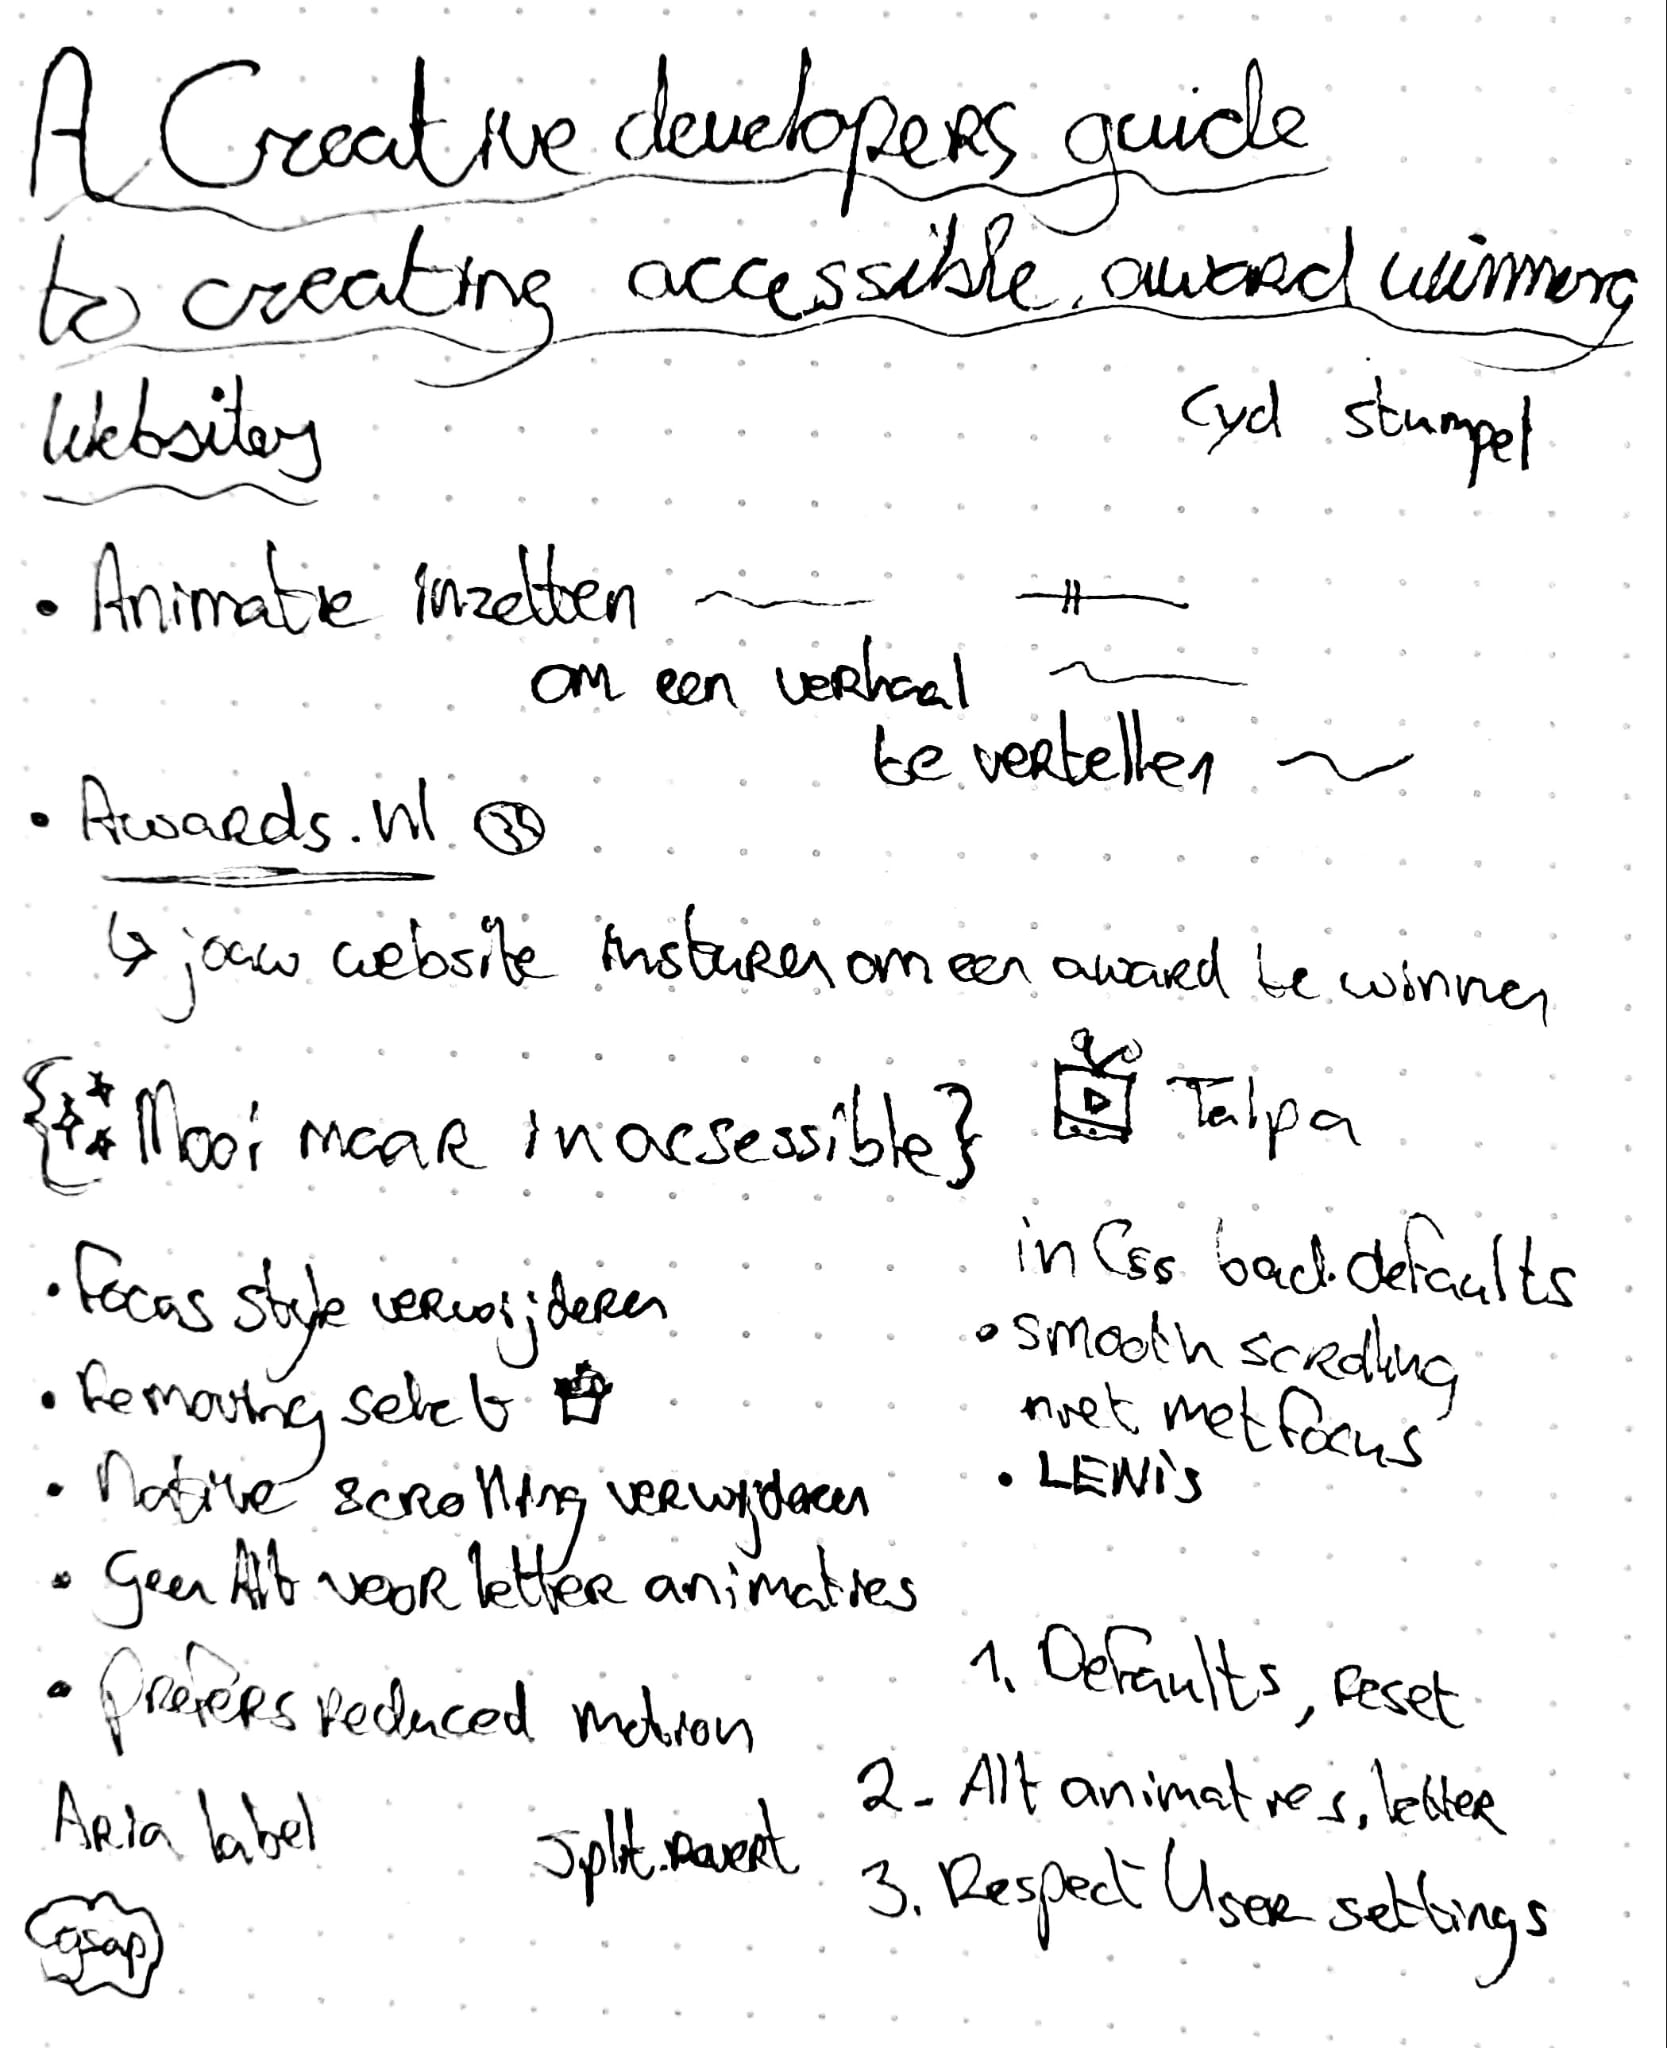 A Creative developers guide
to creating accessible award winning
Websites
Cyd Stumpel
• Animatie inzetten
om een verhaal
te vertellen
• Awards.nl
↳ jouw website insturen om een award te winnen
{Mooi maar inacsessible}
Talpa
• Focus style verwijderen
• Removing select
• Native scrolling verwijderen
• Geen Alt voor letter animaties
• prefers reduced motion
Aria label
gsap
split.revert
in Css bad defaults
• smooth scrolling
niet met focus
• LENis
1. Defaults, reset
2- Alt animaties, letter
3. Respect User settings